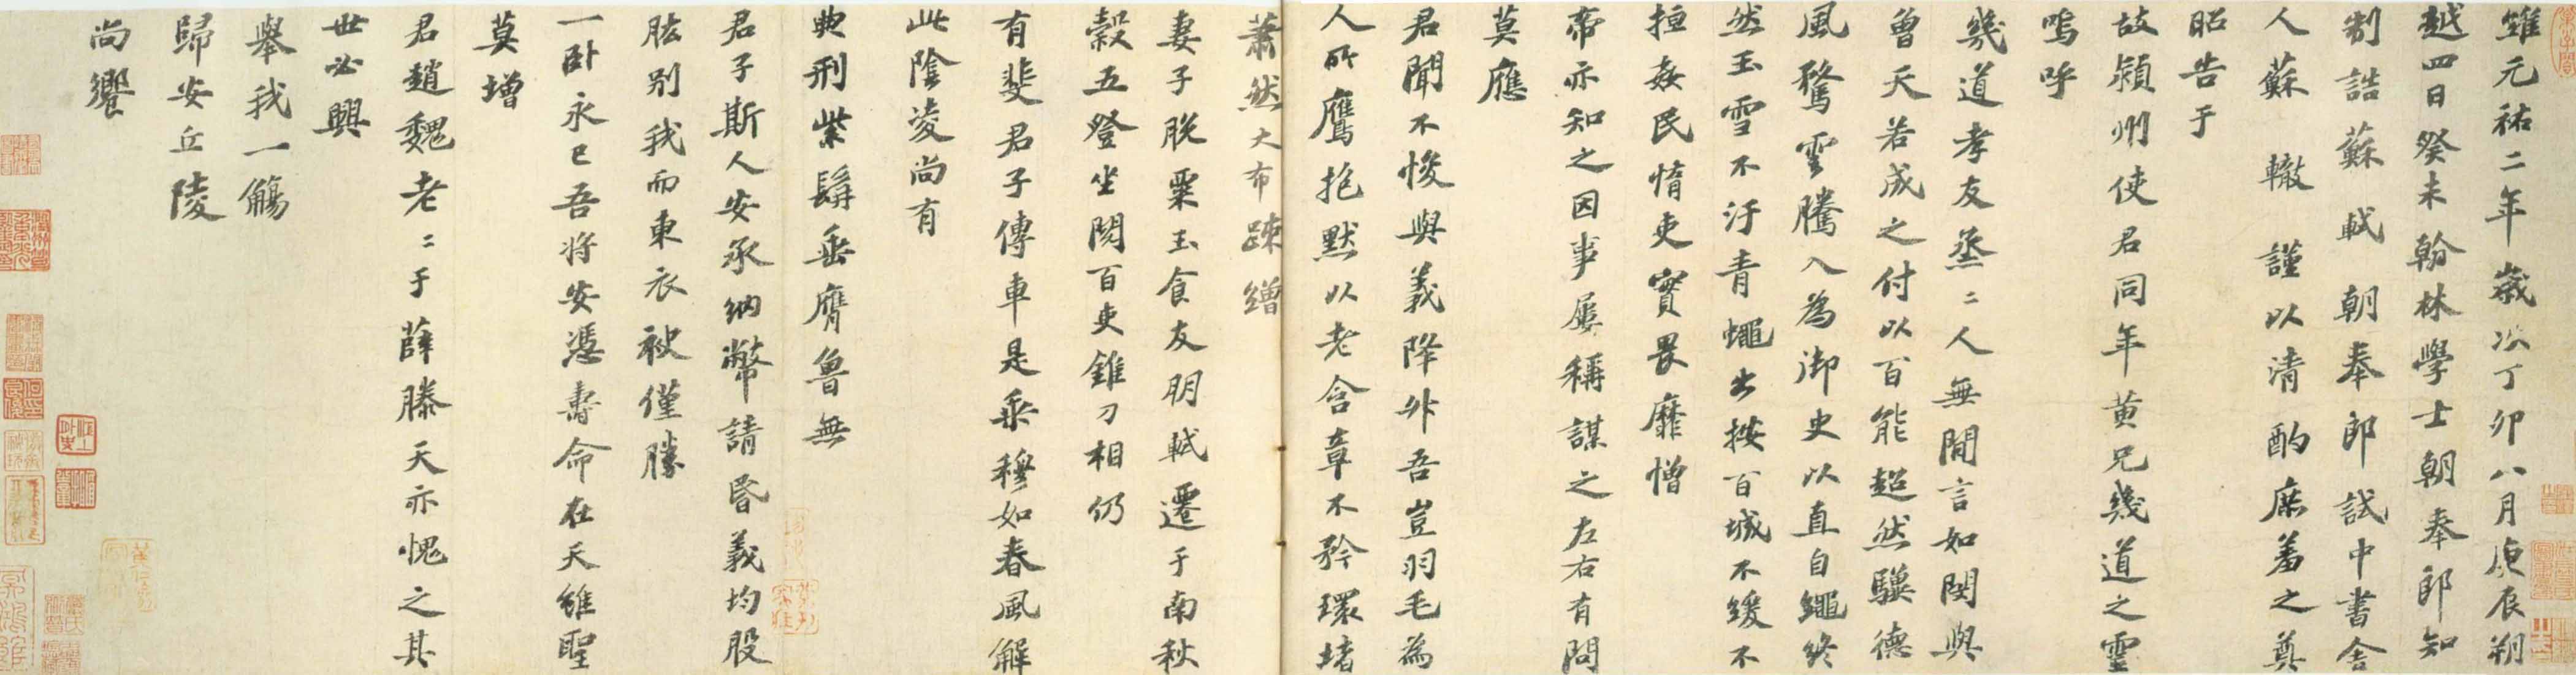 維元祐二年歲次丁卯八月庚辰朔
越四日癸未翰林學士朝奉郎知
制誥蘇軾朝奉郎試中書舍
人蘇轍謹以清酌庶羞之奠
昭告于
故潁州使君同年黃兄幾道之靈
嗚呼
幾道孝友烝〻人無間言如閔與
曾天若成之付以百能超然驥德
風騖雲騰入為御史以直自繩終
然玉雪不汙青蠅出按百城不緩不
㮓姦民惰吏實畏靡憎
帝亦知之因事屢稱謀之左右有問
莫應
君聞不悛與義降升吾豈羽毛為
人所鷹抱默以老含章不矜環堵
蕭然大布疎繒
妻子脫粟玉食友朋軾遷于南秋
穀五登坐閱百吏錐刀相仍
有斐君子傳車是乘穆如春風解
此陰凌尚有
典刑紫髯垂膺魯無
君子斯人安承納幣請昏義均股
肱別我而東衣袂僅勝
一卧永已吾將安憑壽命在天雖聖
莫增
君趙魏老〻于薛滕天亦愧之其
世必興
舉我一觴
歸安丘陵
尚饗